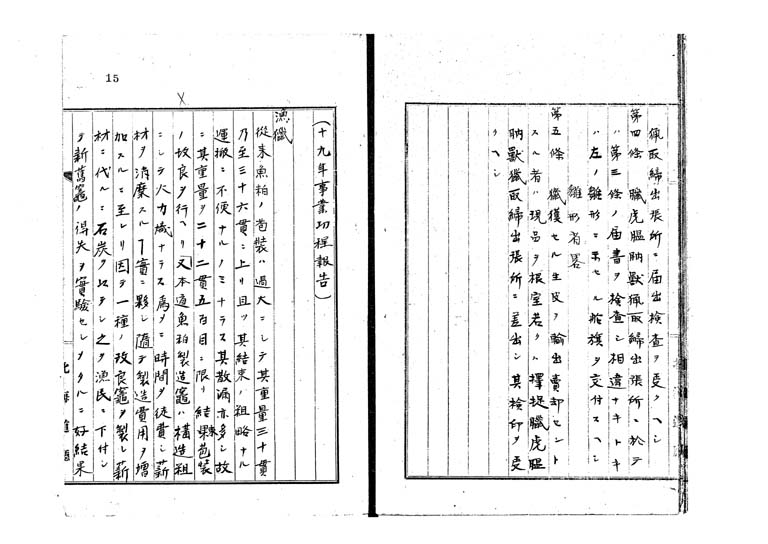 佩取締出張所ニ届出検査ヲ受クヘシ
第四條 臘虎膃肭獣猟取締出張所ニ於テ
ハ第三條ノ届書ヲ検査シ相違ナキトキ
ハ左ノ雛形ニ出セル船旗ヲ交付スヘシ
雛形省畧
第五條 猟獲セル生皮ヲ輸出賣却セント
スル者ハ現品ヲ根室若クハ擇捉臘虎膃
肭獣猟取締出張所ニ差出シ其検印ヲ受
クヘシ
15
(十九年事業功程報告)
漁獵
從来魚粕ノ苞裝ハ過大ニシテ其重量三十貫
乃至三十六貫ニ上リ且ツ其結束ノ粗略ナル
運搬ニ不便ナルノミナラス其散漏亦多シ故
ニ其重量ヲ二十二貫五百目ニ限リ結束苞裝
ノ改良ヲ行ヘリ又本道魚粕製造竈ハ構造粗
ニシテ火力熾ナラス為メニ時間ヲ徒費シ薪
材ヲ消糜スルヿ實ニ夥シ隨テ製造費用ヲ増
加スルニ至レリ因テ一種ノ改良竈ヲ製シ薪
材ニ代ルニ石炭ヲ以テシ之ヲ漁民ニ下付シ
テ新舊竈ノ得失ヲ實驗セシメタルニ好結果
北海道廳